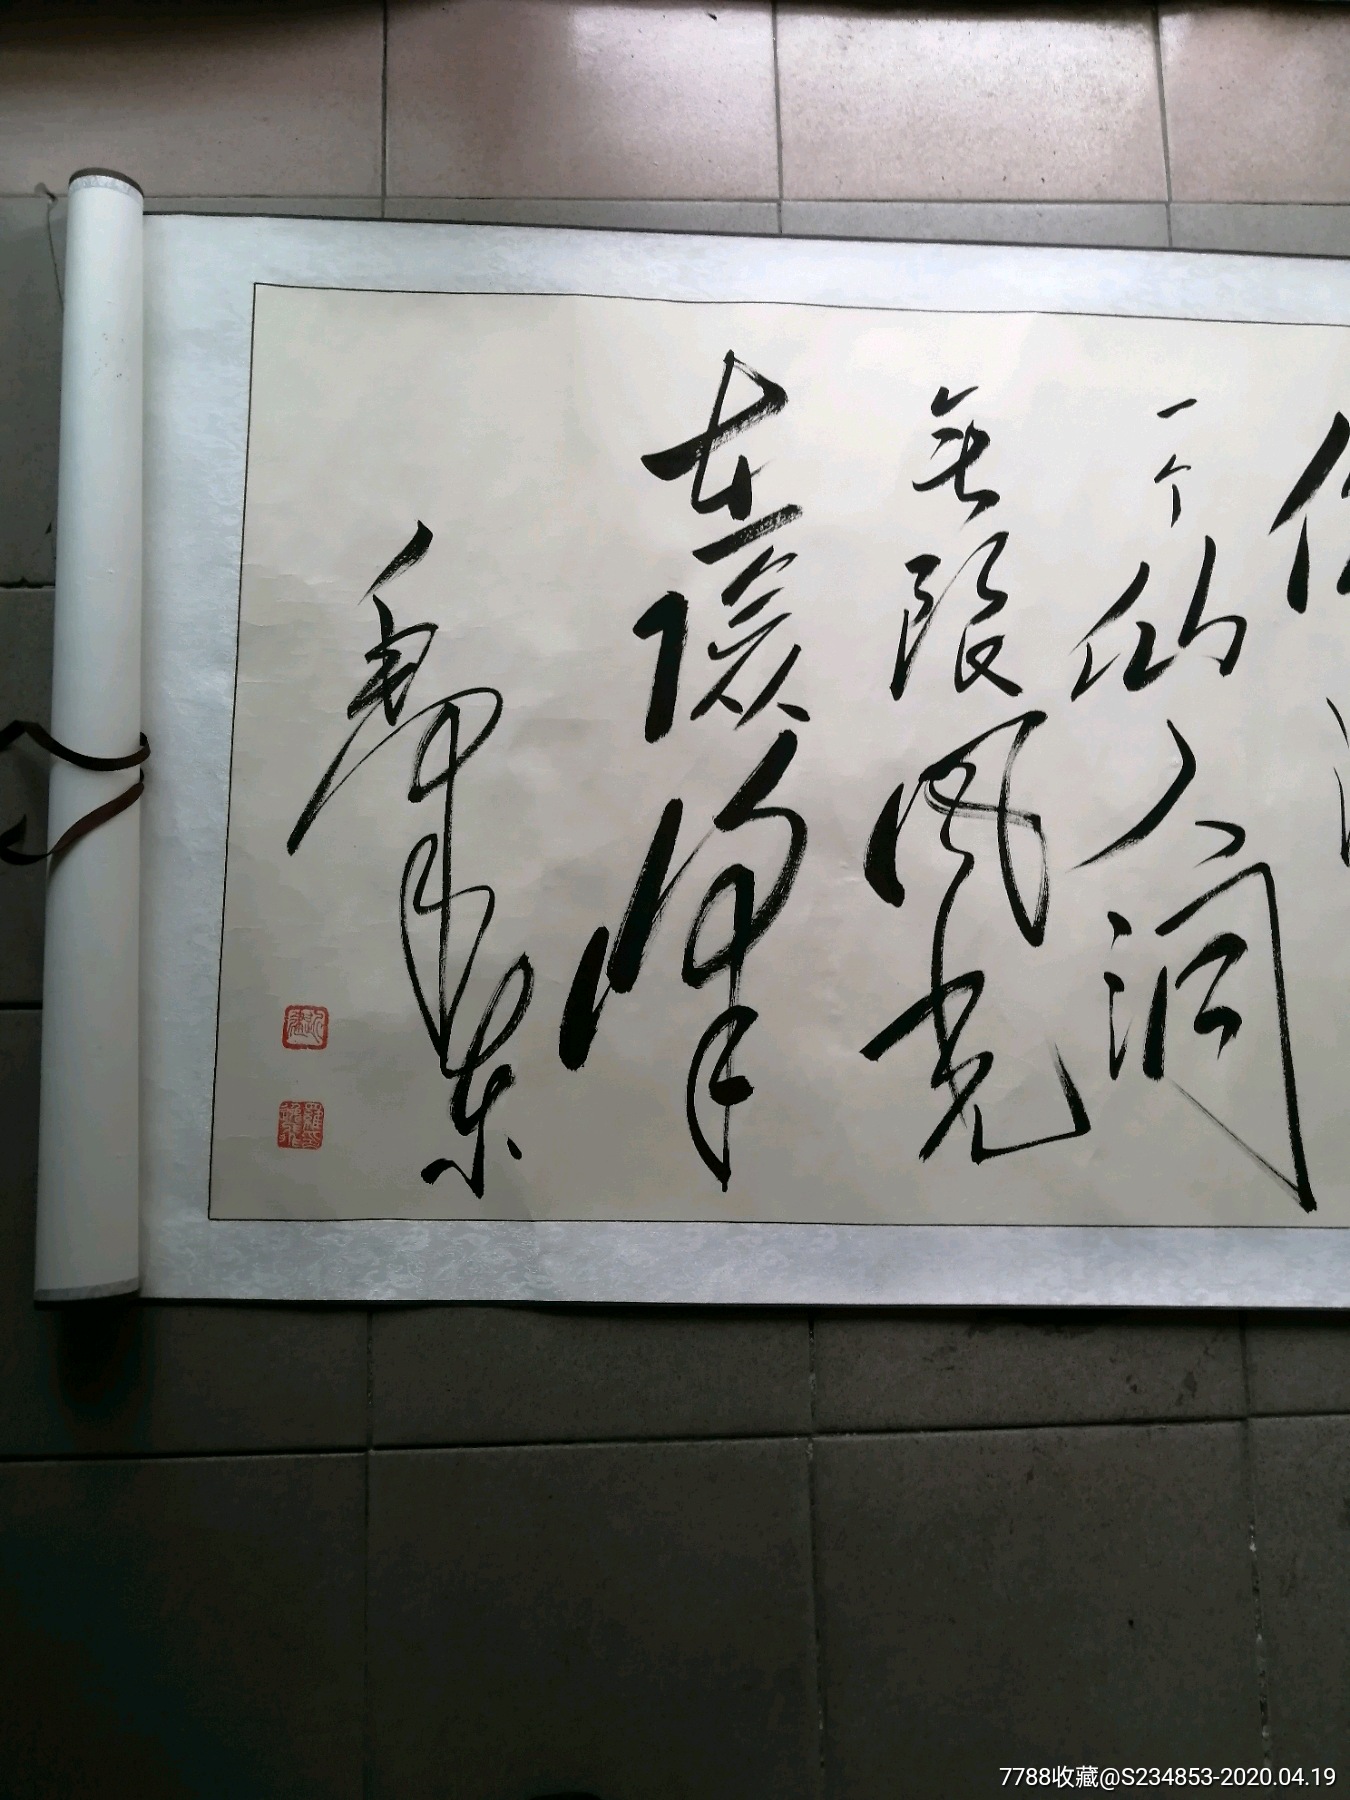 一个仙人洞
无限风光
在险峰
毛泽东
7788收藏@S234853-2020.04.19